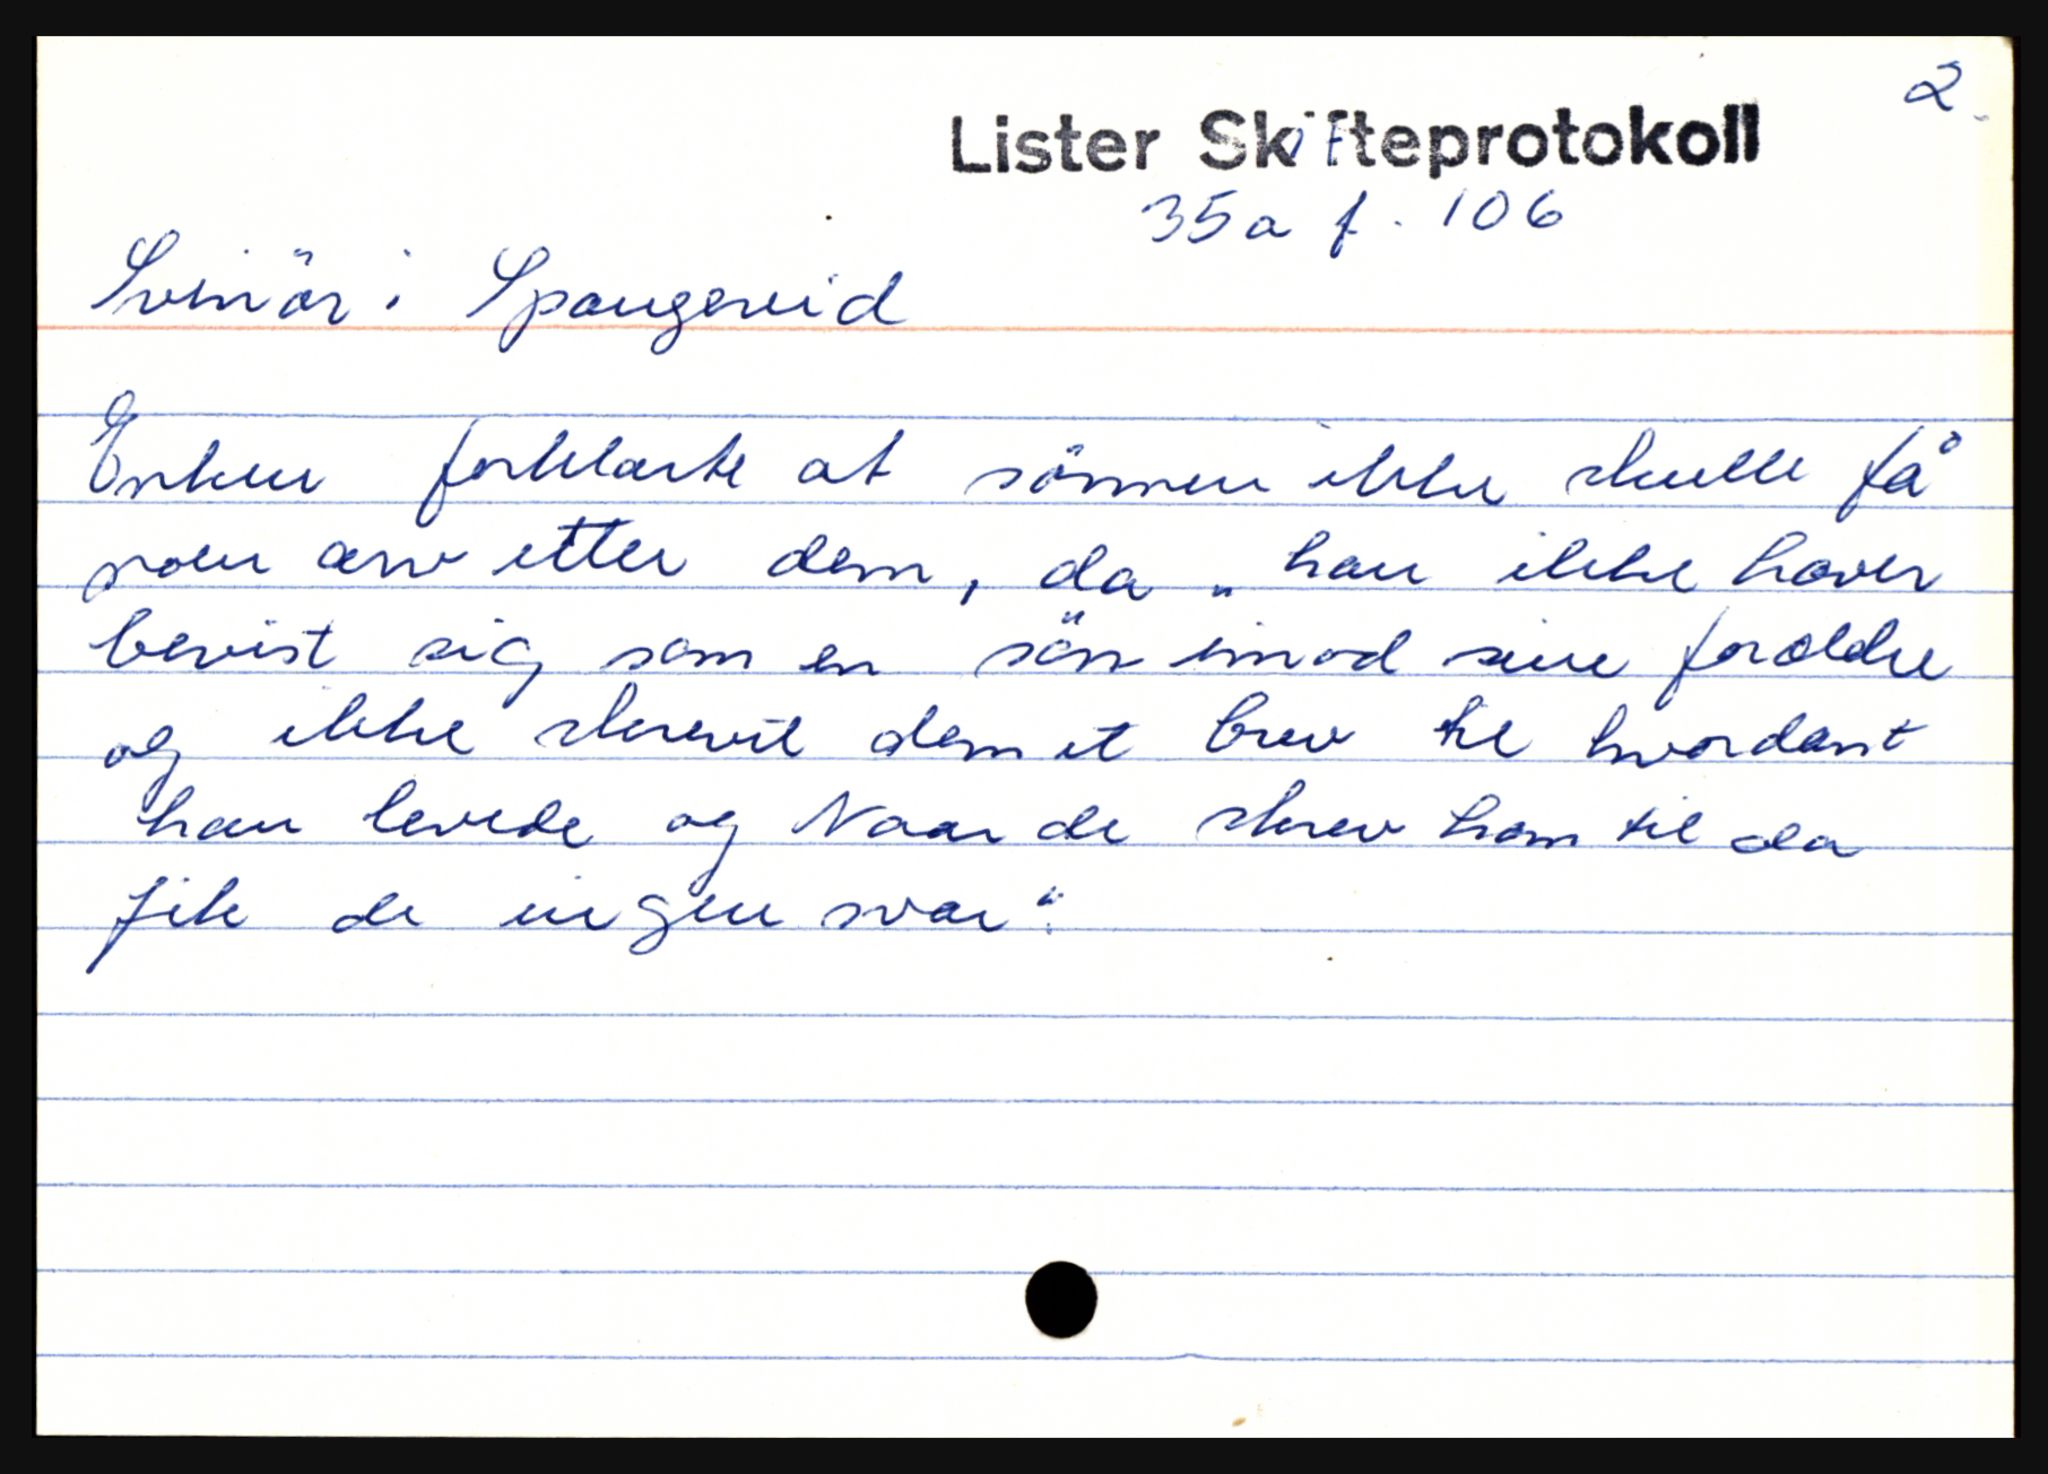 2.
Lister Skifteprotokoll
35a f. 106
Svinör i Spangereid
Enken forklarte at sönnen ikke skulle få
noen arv etter dem, da „han ikke haver
bevist sig som en sön imod sine forældre
og ikke skrevet dem et brev til hvordant
han levede og Naar de skrev ham til da
fik de ingen svar“.